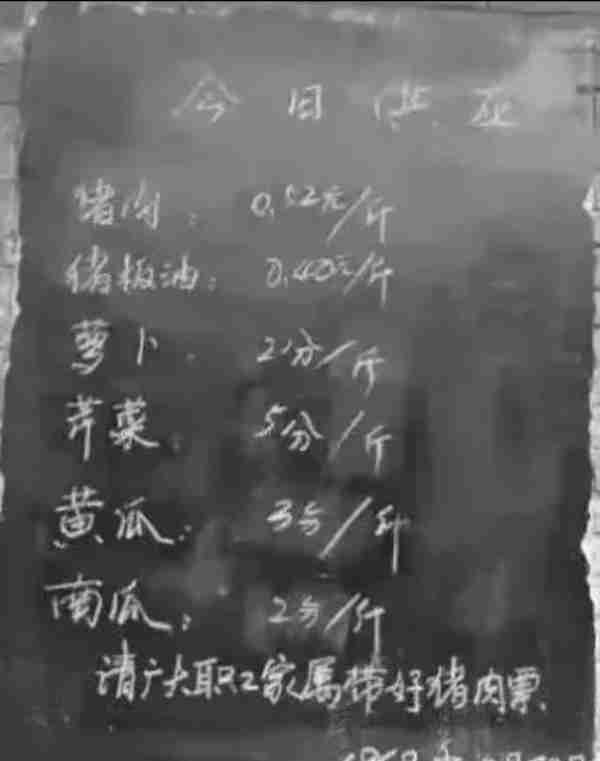 今日供应
猪肉：0.52元/斤
猪板油：0.40元/斤
萝卜：2分/斤
芹菜：5分/斤
黄瓜：3分/斤
南瓜：2分/斤
请广大职工家属带好猪肉票